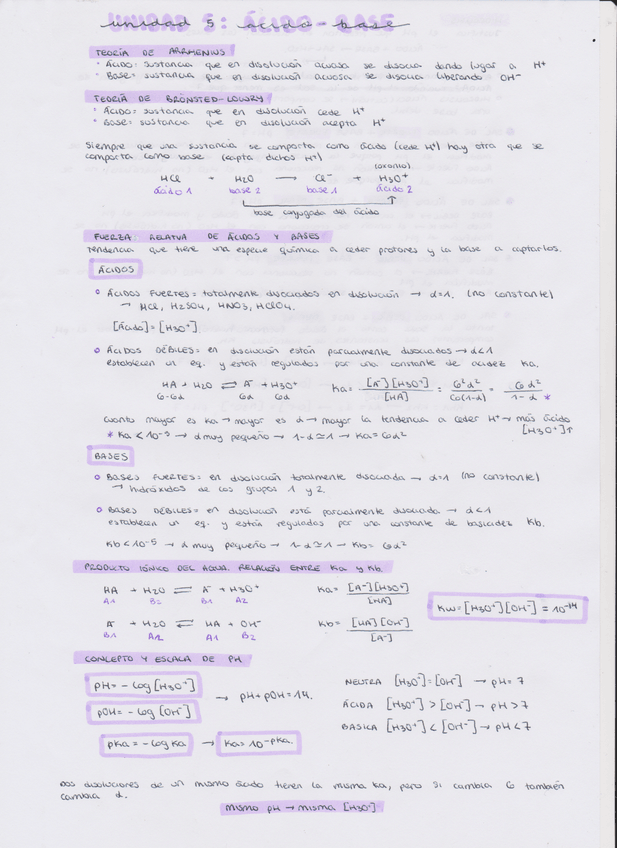 unidad 5: ácido-base
TEORÍA DE ARRHENIUS
• Ácido: sustancia que en disolución acuosa se disocia dando lugar a H⁺
• Base= sustancia que en disolución acuosa se disocia liberando OH⁻
TEORÍA DE BRÖNSTED-LOWRY
• Ácido= sustancia que en disolución cede H⁺
• Base= sustancia que en disolución acepta H⁺
Siempre que una sustancia se comporta como ácido (cede H⁺) hay otra que se
comporta como base (capta dichos H⁺)
(oxonio)
HCl + H2O → Cl⁻ + H3O⁺
ácido 1 base 2 base 1 ácido 2
base conjugada del ácido
FUERZA RELATIVA DE ÁCIDOS Y BASES
Tendencia que tiene una especie química a ceder protones y la base a captarlos.
ÁCIDOS
ÁCIDOS FUERTES= totalmente disociados en disolución → α=1. (no constante)
→ HCl, H2SO4, HNO3, HClO4.
[Ácido]=[H3O⁺]
ÁCIDOS DÉBILES= en disolución están parcialmente disociados → α<1
establecen un eq. y están regulados por una constante de acidez Ka.
HA + H2O ⇌ A⁻ + H3O⁺ Ka= [A⁻][H3O⁺] / [HA] = Co²α² / Co(1-α) = Coα² / 1-α *
Co-Coα Coα Coα
Cuanto mayor es Ka → mayor es α → mayor la tendencia a ceder H⁺ → más ácido
[H3O⁺]↑
* Ka<10⁻⁵ → α muy pequeño → 1-α≃1 → Ka=Coα²
BASES
BASES FUERTES= en disolución totalmente disociada → α=1 (no constante)
→ hidróxidos de los grupos 1 y 2.
BASES DÉBILES= en disolución está parcialmente disociada → α<1
establecen un eq. y están reguladas por una constante de basicidez Kb.
Kb<10⁻⁵ → α muy pequeño → 1-α≃1 → Kb= Coα²
PRODUCTO IÓNICO DEL AGUA. RELACIÓN ENTRE Ka y Kb.
HA + H2O ⇌ A⁻ + H3O⁺ Ka= [A⁻][H3O⁺] / [HA]
A1 B2 B1 A2
Kw=[H3O⁺][OH⁻] = 10⁻¹⁴
A⁻ + H2O ⇌ HA + OH⁻ Kb= [HA][OH⁻] / [A⁻]
B1 A2 A1 B2
CONCEPTO Y ESCALA DE PH
pH=-log[H3O⁺]
pOH=-log[OH⁻]
→ pH+pOH=14.
pKa=-logKa → Ka=10⁻ᵖᴷᵃ.
NEUTRA [H3O⁺]=[OH⁻] → pH=7
ÁCIDA [H3O⁺]>[OH⁻] → pH>7
BASICA [H3O⁺]<[OH⁻] → pH<7
Dos disoluciones de un mismo ácido tienen la misma Ka, pero si cambia Co también
cambia α.
mismo pH → misma [H3O⁺]